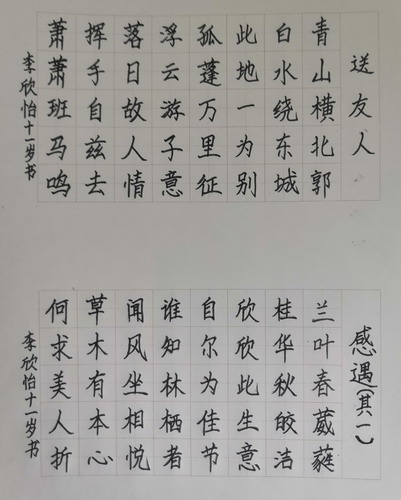 送友人
青山横北郭
白水绕东城
此地一为别
孤蓬万里征
浮云游子意
落日故人情
挥手自兹去
萧萧班马鸣
李欣怡十一岁书
感遇(其一)
兰叶春葳蕤
桂华秋皎洁
欣欣此生意
自尔为佳节
谁知林栖者
闻风坐相悦
草木有本心
何求美人折
李欣怡十一岁书